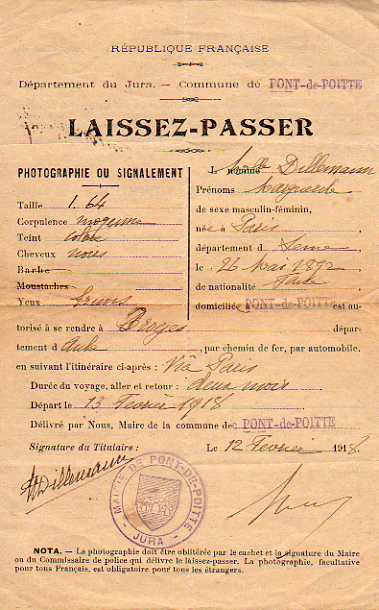 RÉPUBLIQUE FRANÇAISE
Département du Jura. — Commune de PONT-de-POITTE
LAISSEZ-PASSER
PHOTOGRAPHIE OU SIGNALEMENT
Taille 1.64
Corpulence moyenne
Teint
Cheveux noirs
Barbe
Moustaches
Yeux
L nommé Melle Dillemann
Prénoms Marguerite
de sexe masculin-féminin,
née à Paris
département d Seine
le 26 Mai 1872
de nationalité
domiciliée à PONT-de-POITTE est au-
torisé à se rendre à dépar-
tement d Aube, par chemin de fer, par automobile,
en suivant l'itinéraire ci-après : Via Paris
Durée du voyage, aller et retour : deux mois
Départ le 13 Février 1918
Délivré par Nous, Maire de la commune de PONT-de-POITTE
Signature du Titulaire : Le 12 Février 1918.
Dillemann
MAIRIE DE PONT-DE-POITTE
- JURA -
NOTA. — La photographie doit être oblitérée par le cachet et la signature du Maire
ou du Commissaire de police qui délivre le laissez-passer. La photographie, facultative
pour tous Français, est obligatoire pour tous les étrangers.